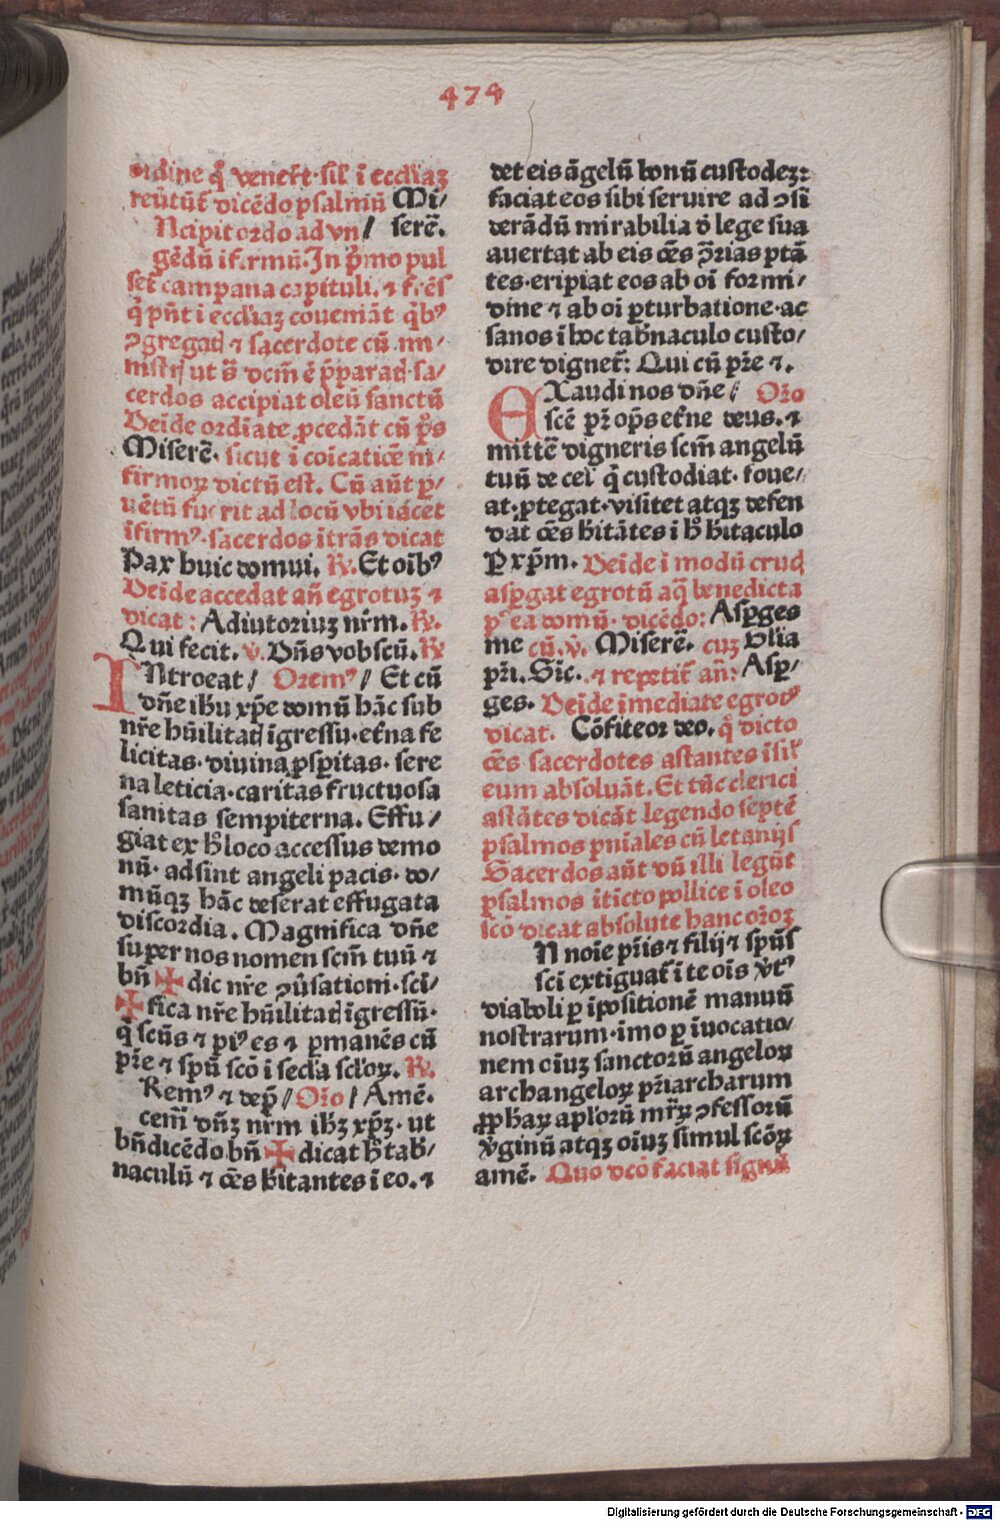 474
ordine q̄ venerт̄·sil' ī eccl'iaꝫ
reūtūt̄ dicēdo psalmū Mi/
Ncipit ordo ad vn/ serē.
gēdū īfirmū. In p̄mo pul
set̄ campana capituli. ⁊ fr̄es
q̄ pn̄t ī eccl'iaꝫ cōveniāt q̄bꝰ
ꝯgregad ⁊ sacerdote cū mi/
nistr̄ ut s̄ dcm̄ ē p̄parad sa/
cerdos accipiat oleū sanctū
Deīde ordīate ꝓcedāt cū p̄s
Miserē. sicut ī cōicatiōe in/
firmoꝝ dictū est. Cū aūt p̄/
uētū fuerit ad locū vbi iacet
īfirmꝰ·sacerdos ītrās dicat
Pax huic domui. ℟. Et oīb'
Deīde accedat an̄ egrotuꝫ ⁊
dicat: Adiutoriuꝫ nr̄m. ℟.
Qui fecit. ℣. Dn̄s vobscū. ℟
INtroeat/ Oremꝰ/ Et cū
dn̄e ih̄u xp̄e domū hāc sub
nr̄e hūilitad īgressu·et̄na fe
licitas·diuina ꝓsp̄itas·sere
na leticia·caritas fructuosa
sanitas sempiterna. Effu/
giat ex h̄ loco accessus demo
nū· adsint angeli pacis· do/
mūqꝫ hāc deserat effugata
discordia. Magnifica dn̄e
super nos nomen scm̄ tuū ⁊
bn̄ ✠ dic nr̄e ꝯūsationi·sci/
✠ fica nr̄e hūilitad īgressū·
q̄ scūs ⁊ piꝰ es ⁊ p̄manēs cū
pr̄e ⁊ spū scō ī secl'a scl'oꝝ. ℟.
Remꝰ ⁊ dep̄/ Or̄o / Amē.
cem̄ dn̄ꝫ nr̄m ih̄ꝫ xp̄ꝫ·ut
bn̄dicēdo bn̄ ✠ dicat h̄ tab̄/
naculū ⁊ oēs h̄itantes ī eo. ⁊
det eis āgelū bonū custodeꝫ:
faciat eos sibi seruire ad ꝯsi
derādū mirabilia d̄ lege sua
auertat ab eis oēs ꝯ̄rias ptā
tes·eripiat eos ab oī formi/
dine ⁊ ab oī ꝑturbatione·ac
sanos ī hoc tab̄naculo custo/
dire dignet̄: Qui cū pr̄e ⁊.
EXaudi nos dn̄e/ Or̄o
scē pr̄ op̄s et̄ne deus. ⁊
mittē digneris scm̄ angelū
tuū de cel' q̄ custodiat·foue/
at·ꝓtegat·visitet atqꝫ defen
dat oēs h̄itātes ī h̄ h̄itaculo
P xp̄m. Deīde ī modū crud
asp̄gat egrotū aq̄ benedicta
pꝰ ea domū· dicēdo: Asp̄ges
me cū. ℣. Miserē. cuꝫ gl'ia
pr̄i. Sic. ⁊ repetit̄ an̄: Asp̄/
ges. Deīde īmediate egrotꝰ
dicat. Cōfiteor deo. q̄ dicto
oēs sacerdotes astantes īsil'
eum absoluāt. Et tūc clerici
astātes dicāt legendo septē
psalmos pn̄iales cū letanijs
Sacerdos aūt dū illi legūt
psalmos ītīcto pollice ī oleo
scō dicat absolute hanc or̄oꝫ
N noīe pr̄is ⁊ filij ⁊ spūs
sci extīguat̄ ī te oīs v̄tꝰ
diaboli ꝑ īpositionē manuū
nostrarum·īmo ꝑ īuocatio/
nem oīuꝫ sanctorū angeloꝝ
archangeloꝝ pr̄iarcharum
ꝓphaꝝ apl'orū mr̄ꝝ ꝯfessorū
v̄ginū atqꝫ oīuꝫ simul scōꝝ
amē. Quo dcō faciat signū
Digitalisierung gefördert durch die Deutsche Forschungsgemeinschaft - DFG